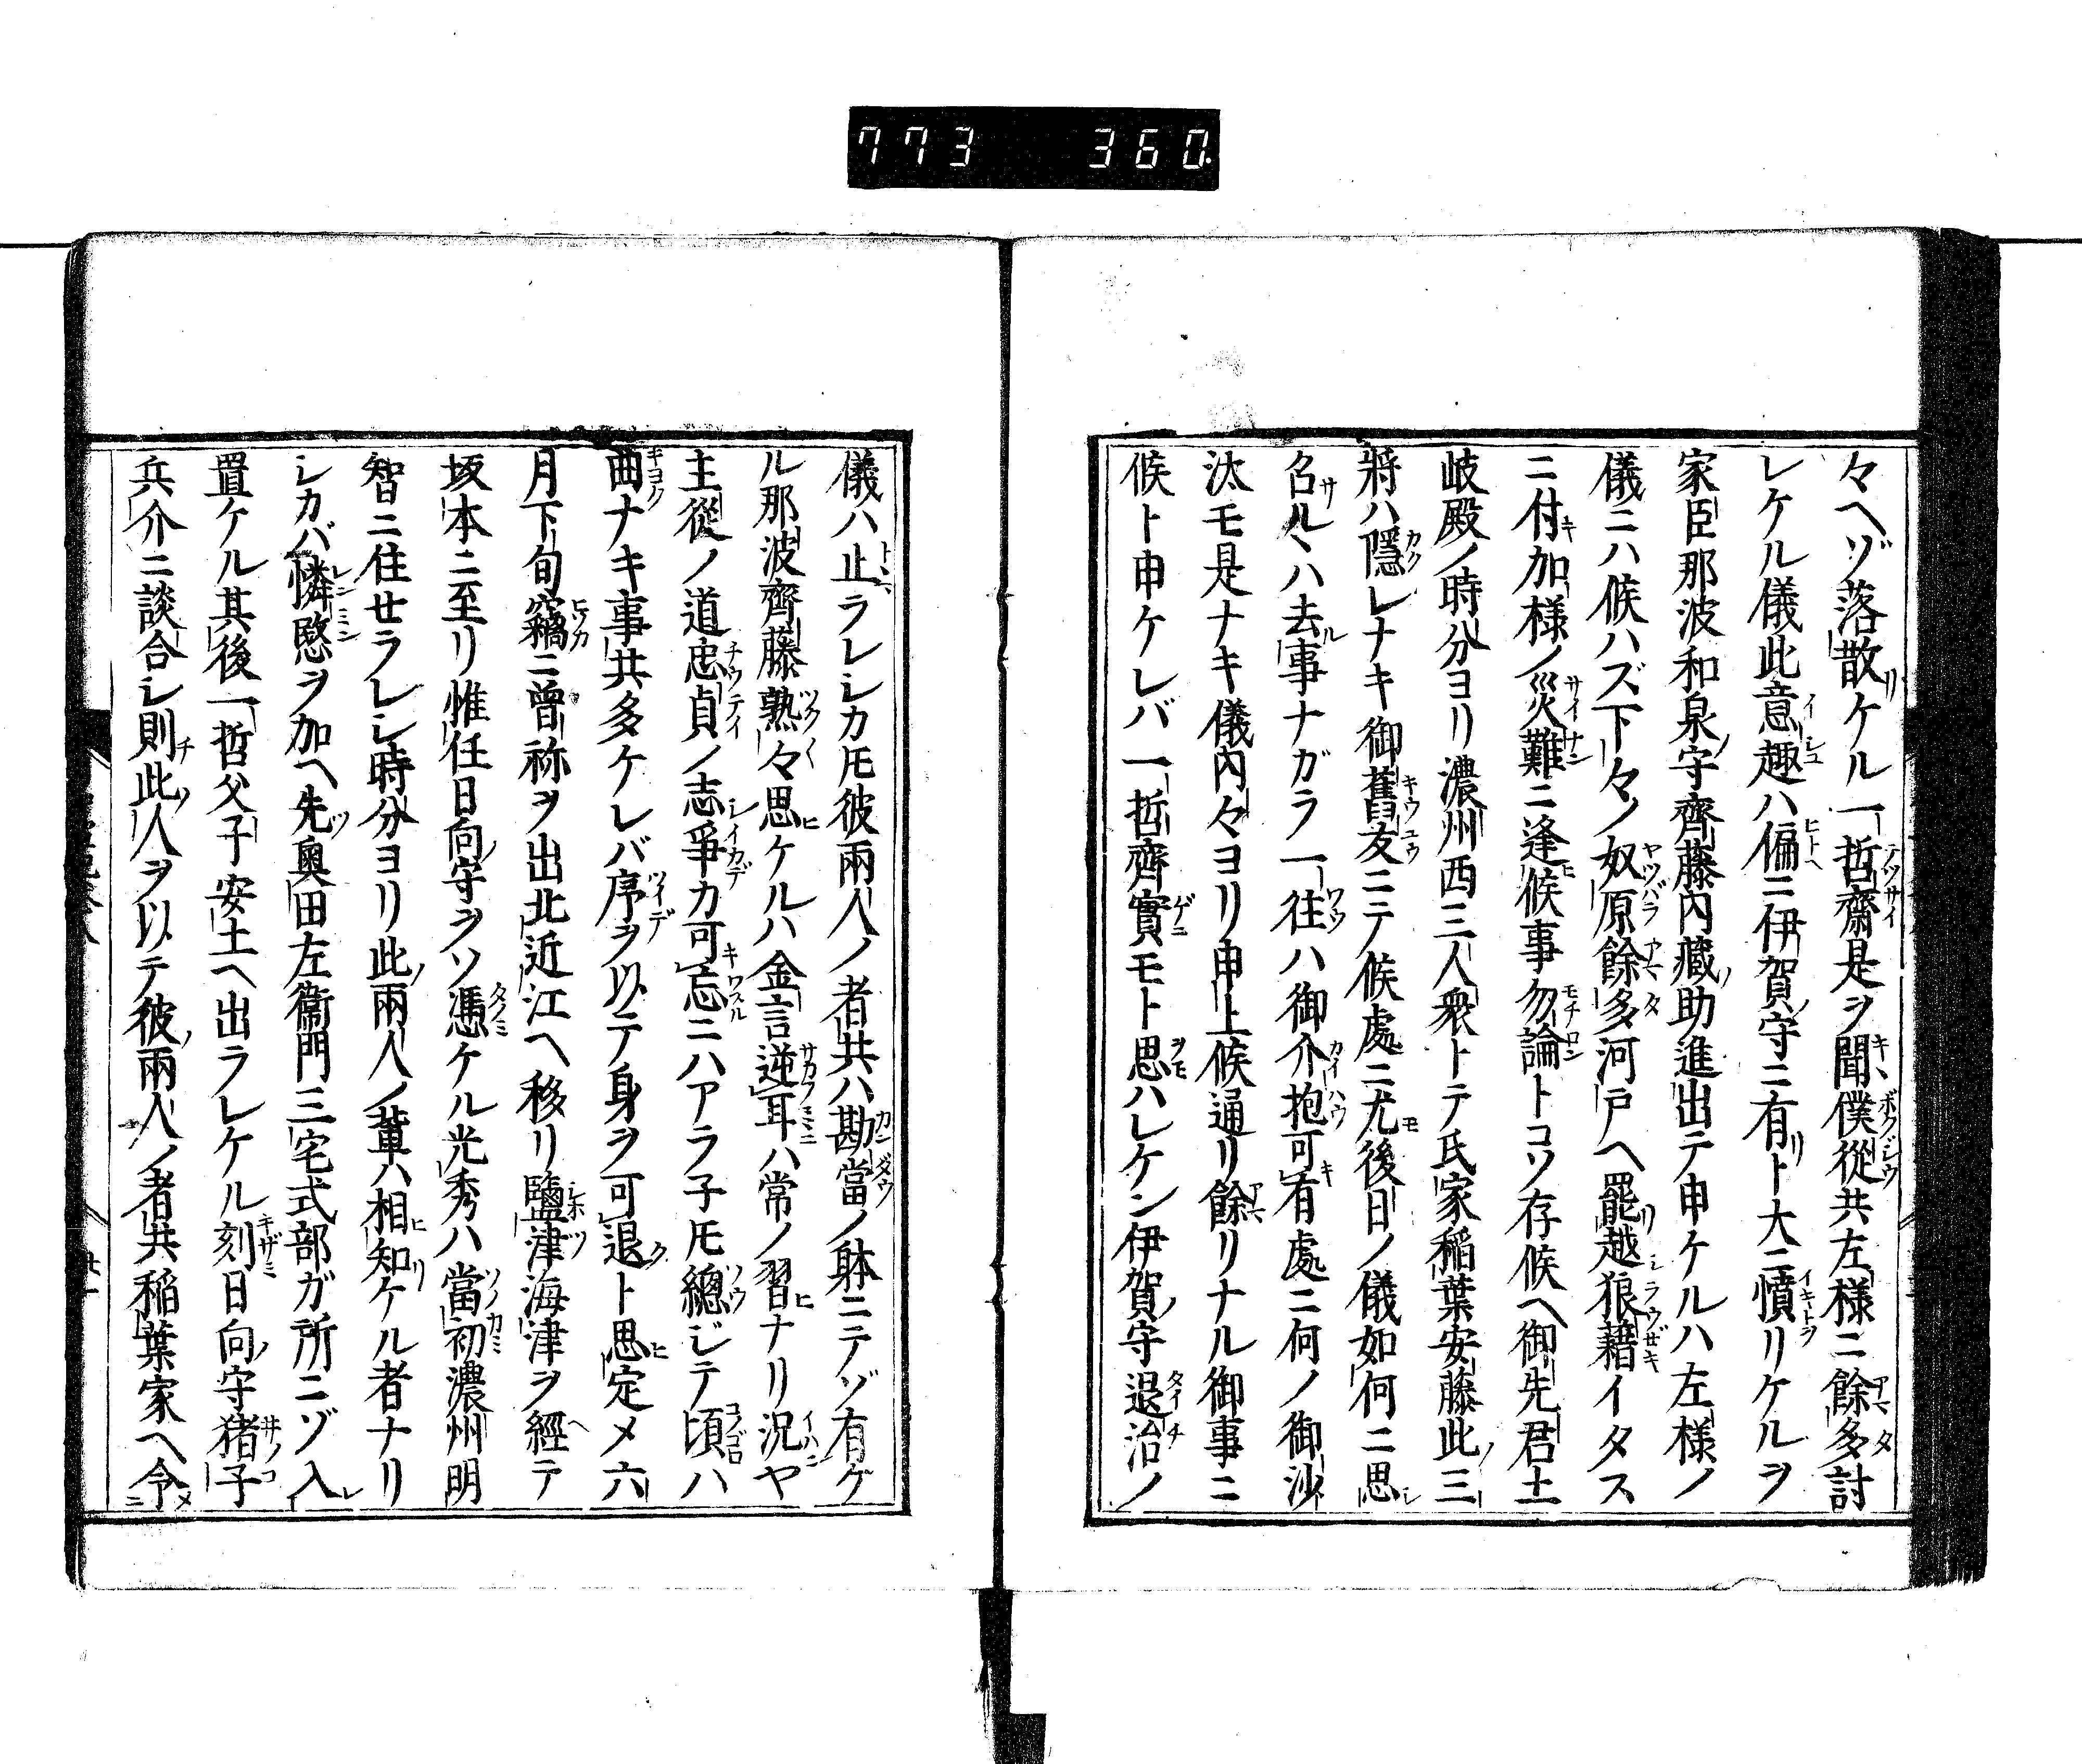 773 360
々ヘゾ落散ケル一哲齋是ヲ聞僕從共左樣ニ餘多討
レケル儀此意趣ハ偏ニ伊賀守ニ有ト大ニ憤リケルヲ
家臣那波和泉守齊藤內藏助進出テ申ケルハ左樣ノ
儀ニハ候ハズ下々ノ奴原餘多河戸ヘ罷越狼藉イタス
ニ付加樣ノ災難ニ逢候事勿論トコソ存候ヘ御先君土
岐殿ノ時分ヨリ濃州西三人衆トテ氏家稲葉安藤此三
將ハ隱レナキ御舊友ニテ候處ニ尤後日ノ儀如何ニ思
召ルヽハ去事ナガラ一往ハ御介抱可有處ニ何ノ御沙
汰モ是ナキ儀內々ヨリ申上候通リ餘リナル御事ニ
候ト申ケレバ一哲齊實モト思ハレケン伊賀守退治ノ
儀ハ止ラレシカ𪜈彼兩人ノ者共ハ勘當ノ躰ニテゾ有ケ
ル那波齊藤熟々思ケルハ金言逆耳ハ常ノ習ナリ況ヤ
主從ノ道忠貞ノ志爭カ可忘ニハアラ子𪜈總ジテ頃ハ
曲ナキ事共多ケレバ序ヲ以テ身ヲ可退ト思定メ六
月下旬竊ニ曾祢ヲ出北近江ヘ移リ鹽津海津ヲ經テ
坂本ニ至リ惟任日向守ヲソ憑ケル光秀ハ當初濃州明
智ニ住セラレシ時分ヨリ此兩人ノ輩ハ相知ケル者ナリ
シカバ憐愍ヲ加ヘ先奧田左衞門三宅式部ガ所ニゾ入
置ケル其後一哲父子安土ヘ出ラレケル刻日向守猪子
兵介ニ談合シ則此人ヲ以テ彼兩人ノ者共稲葉家ヘ令